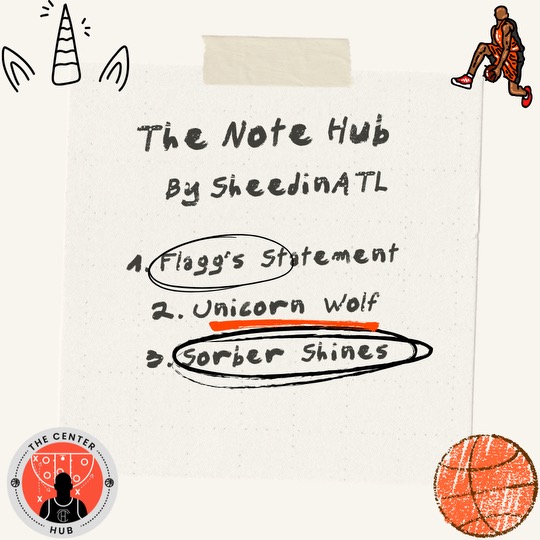 The Note Hub
By SheedinATL
1. Flagg's Statement
2. Unicorn Wolf
3. Sorber Shines
THE CENTER
HUB